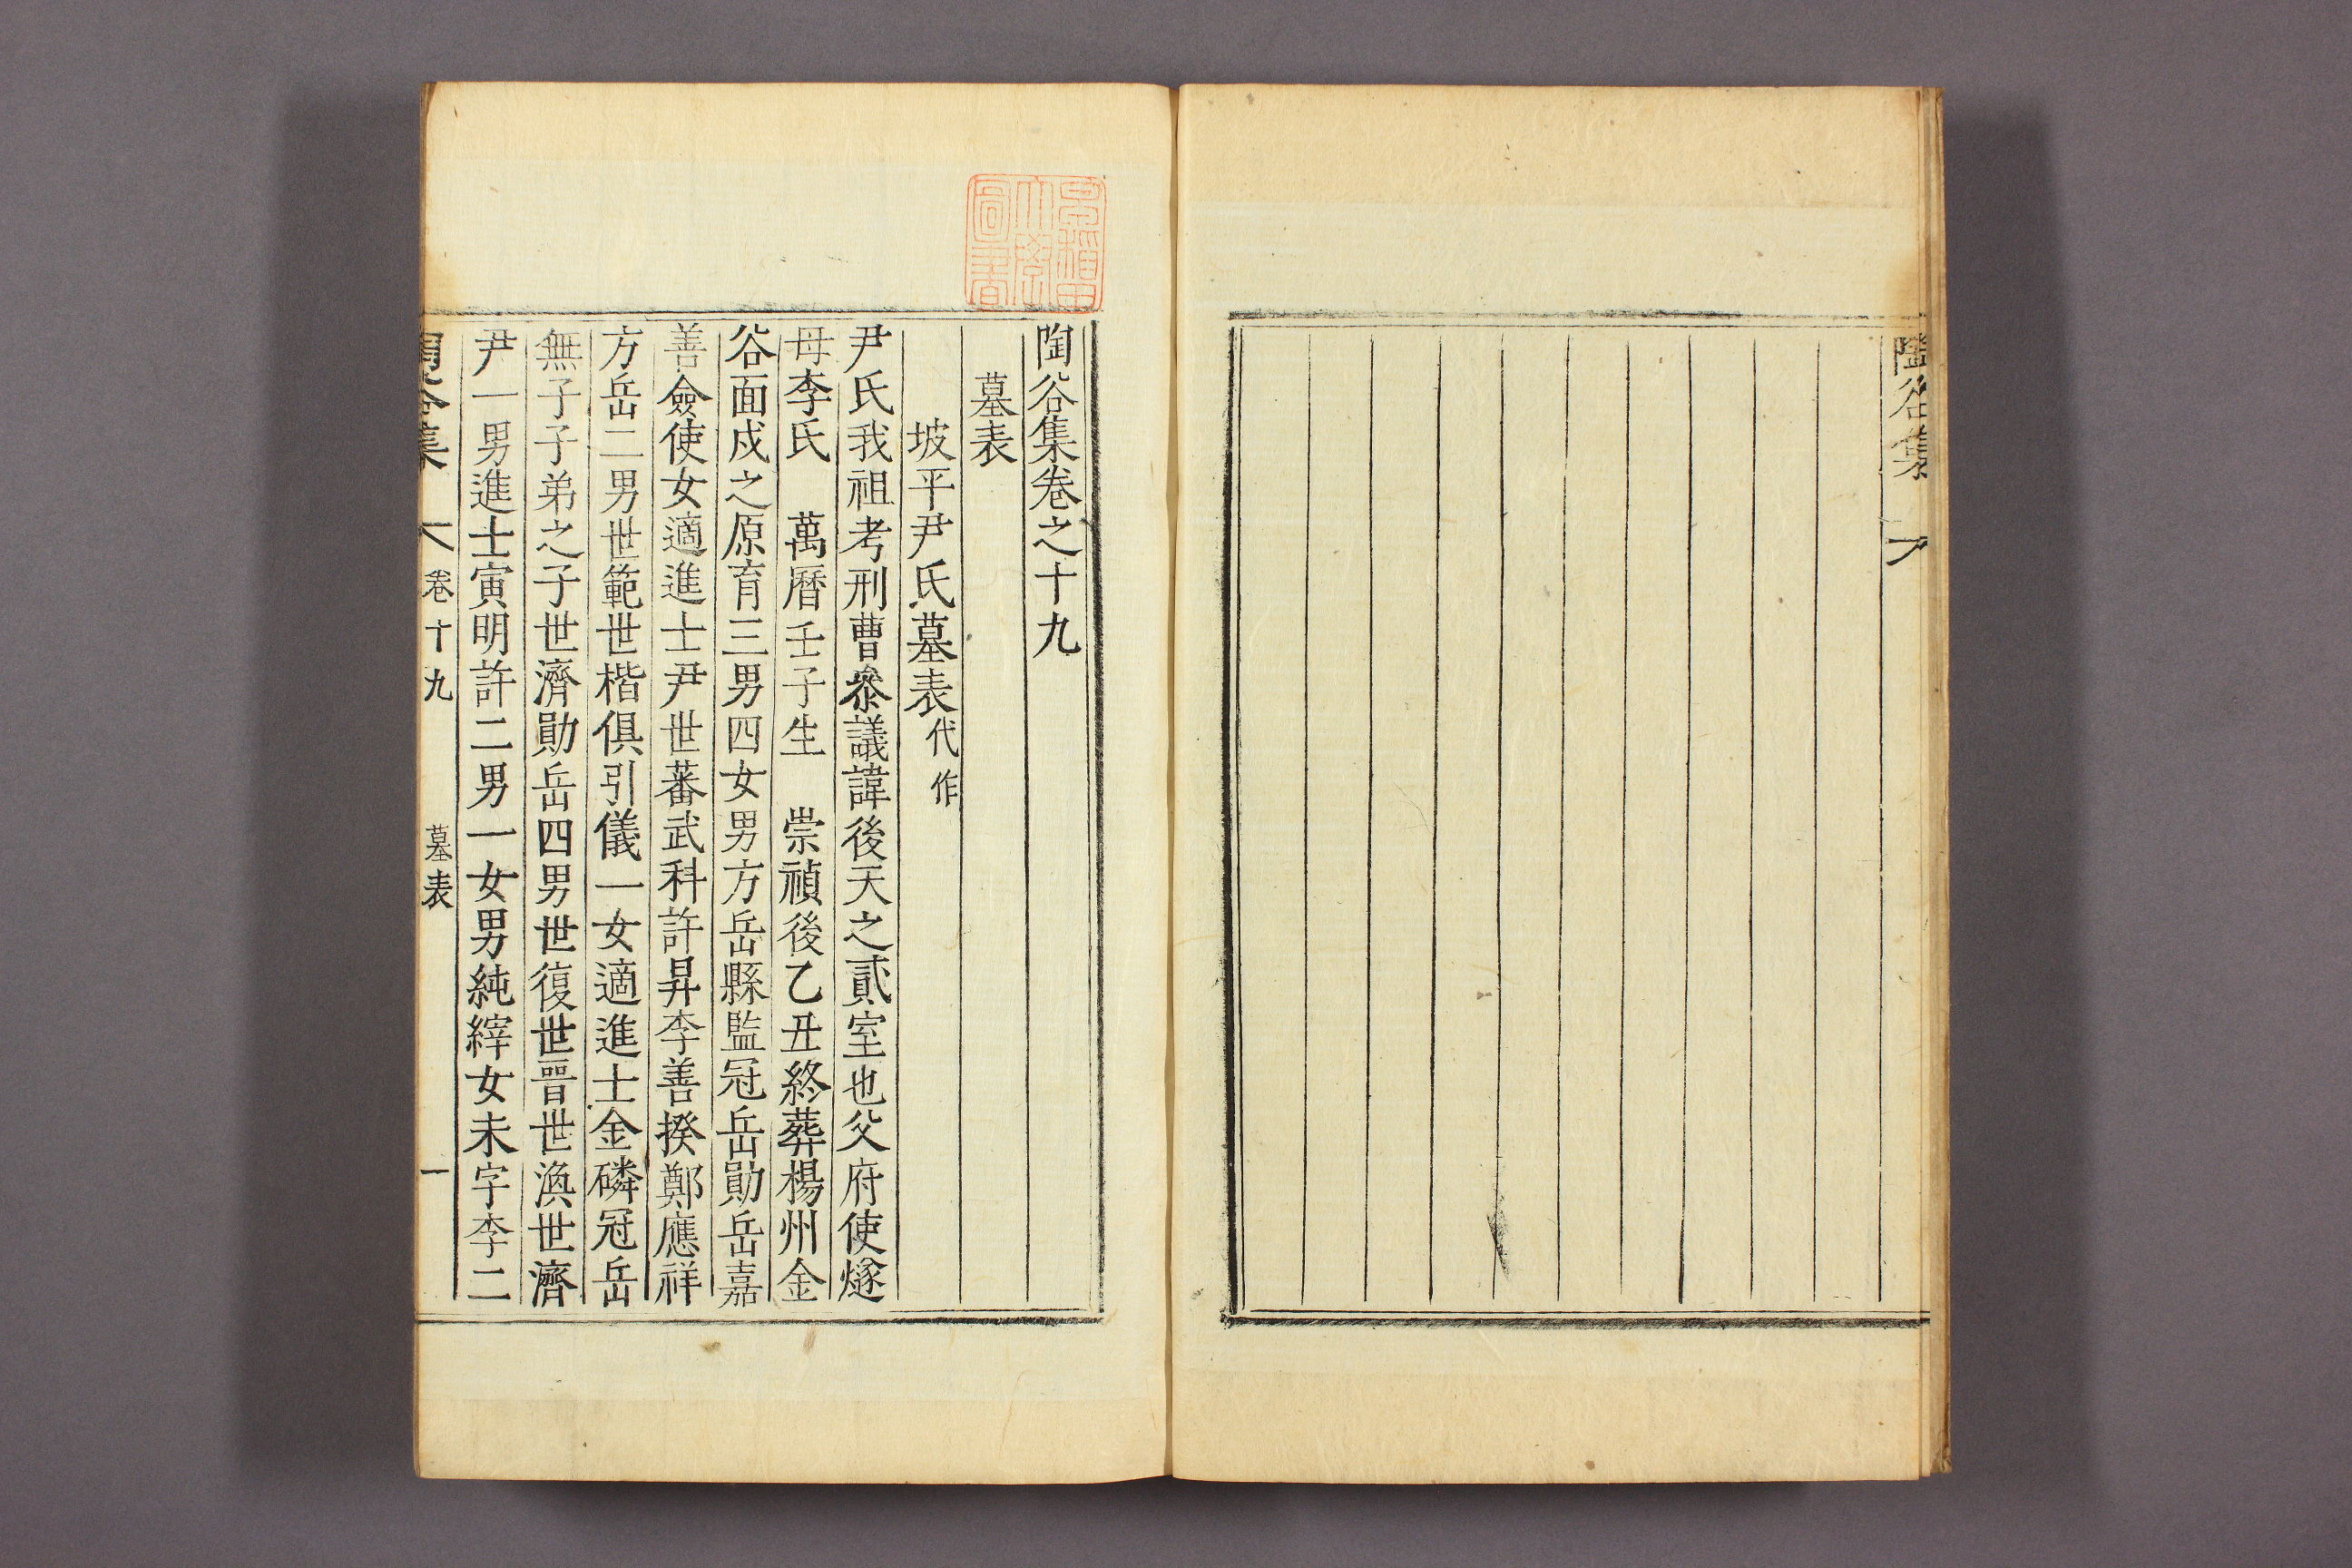 陶谷集
陶谷集卷之十九
墓表
坡平尹氏墓表代作
尹氏我祖考刑曹叅議諱後天之貳室也父府使燧
母李氏 萬曆壬子生 崇禎後乙丑終葬楊州金
谷面戍之原育三男四女男方岳縣監冠岳勛岳嘉
善僉使女適進士尹世蕃武科許昇李善揆鄭應祥
方岳二男世範世楷俱引儀一女適進士金磷冠岳
無子子弟之子世濟勛岳四男世復世晉世渙世濟
尹一男進士寅明許二男一女男純縡女未字李二
陶谷集 卷十九 墓表 一
早稻田大學圖書